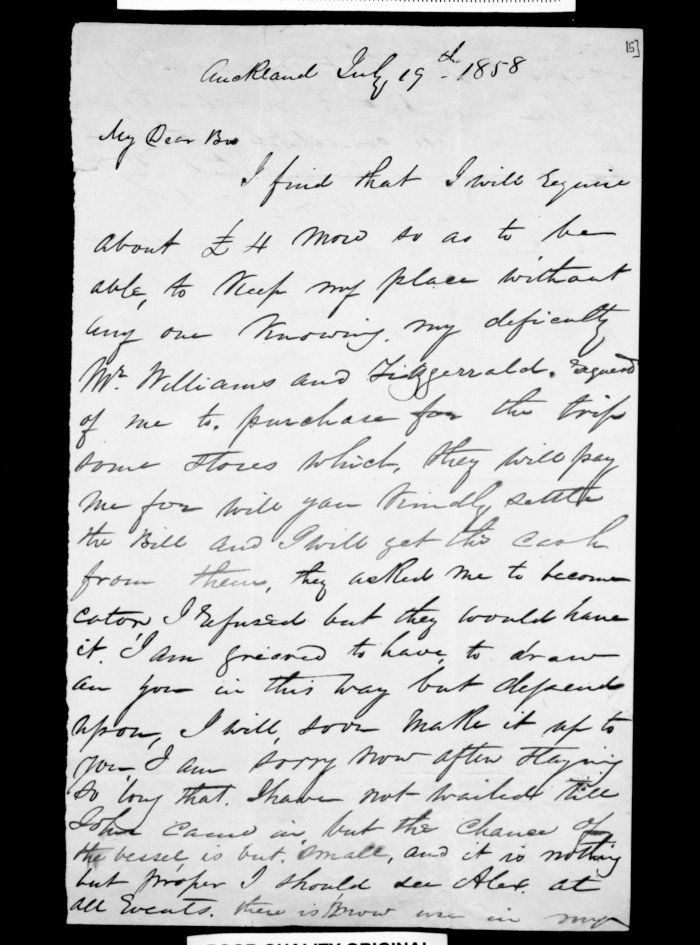 15]
Auckland July 19th 1858
My Dear Bro
I find that I will Require
about £ 4 More so as to be
able, to Keep my place without
any one Knowing. my deficulty
Mr. Williams and Fitzgerrald. Requierd
of me to. purchase for the trip
some stores which, they will pay
me for will you Kindly settle
the Bill and I will get the cash
from them, they asked me to become
cator I Refused but they would have
it. I am grieved to have, to draw
on you in this way but depend
upon, I will, soon make it up to
you I am sorry now after staying
so long that. I have not waited till
John came in but the chance of
the vessel, is but. small, and it is nothing
but proper I should see Alex. at
all Events. there is now use in my
POOR QUALITY ORIGINAL